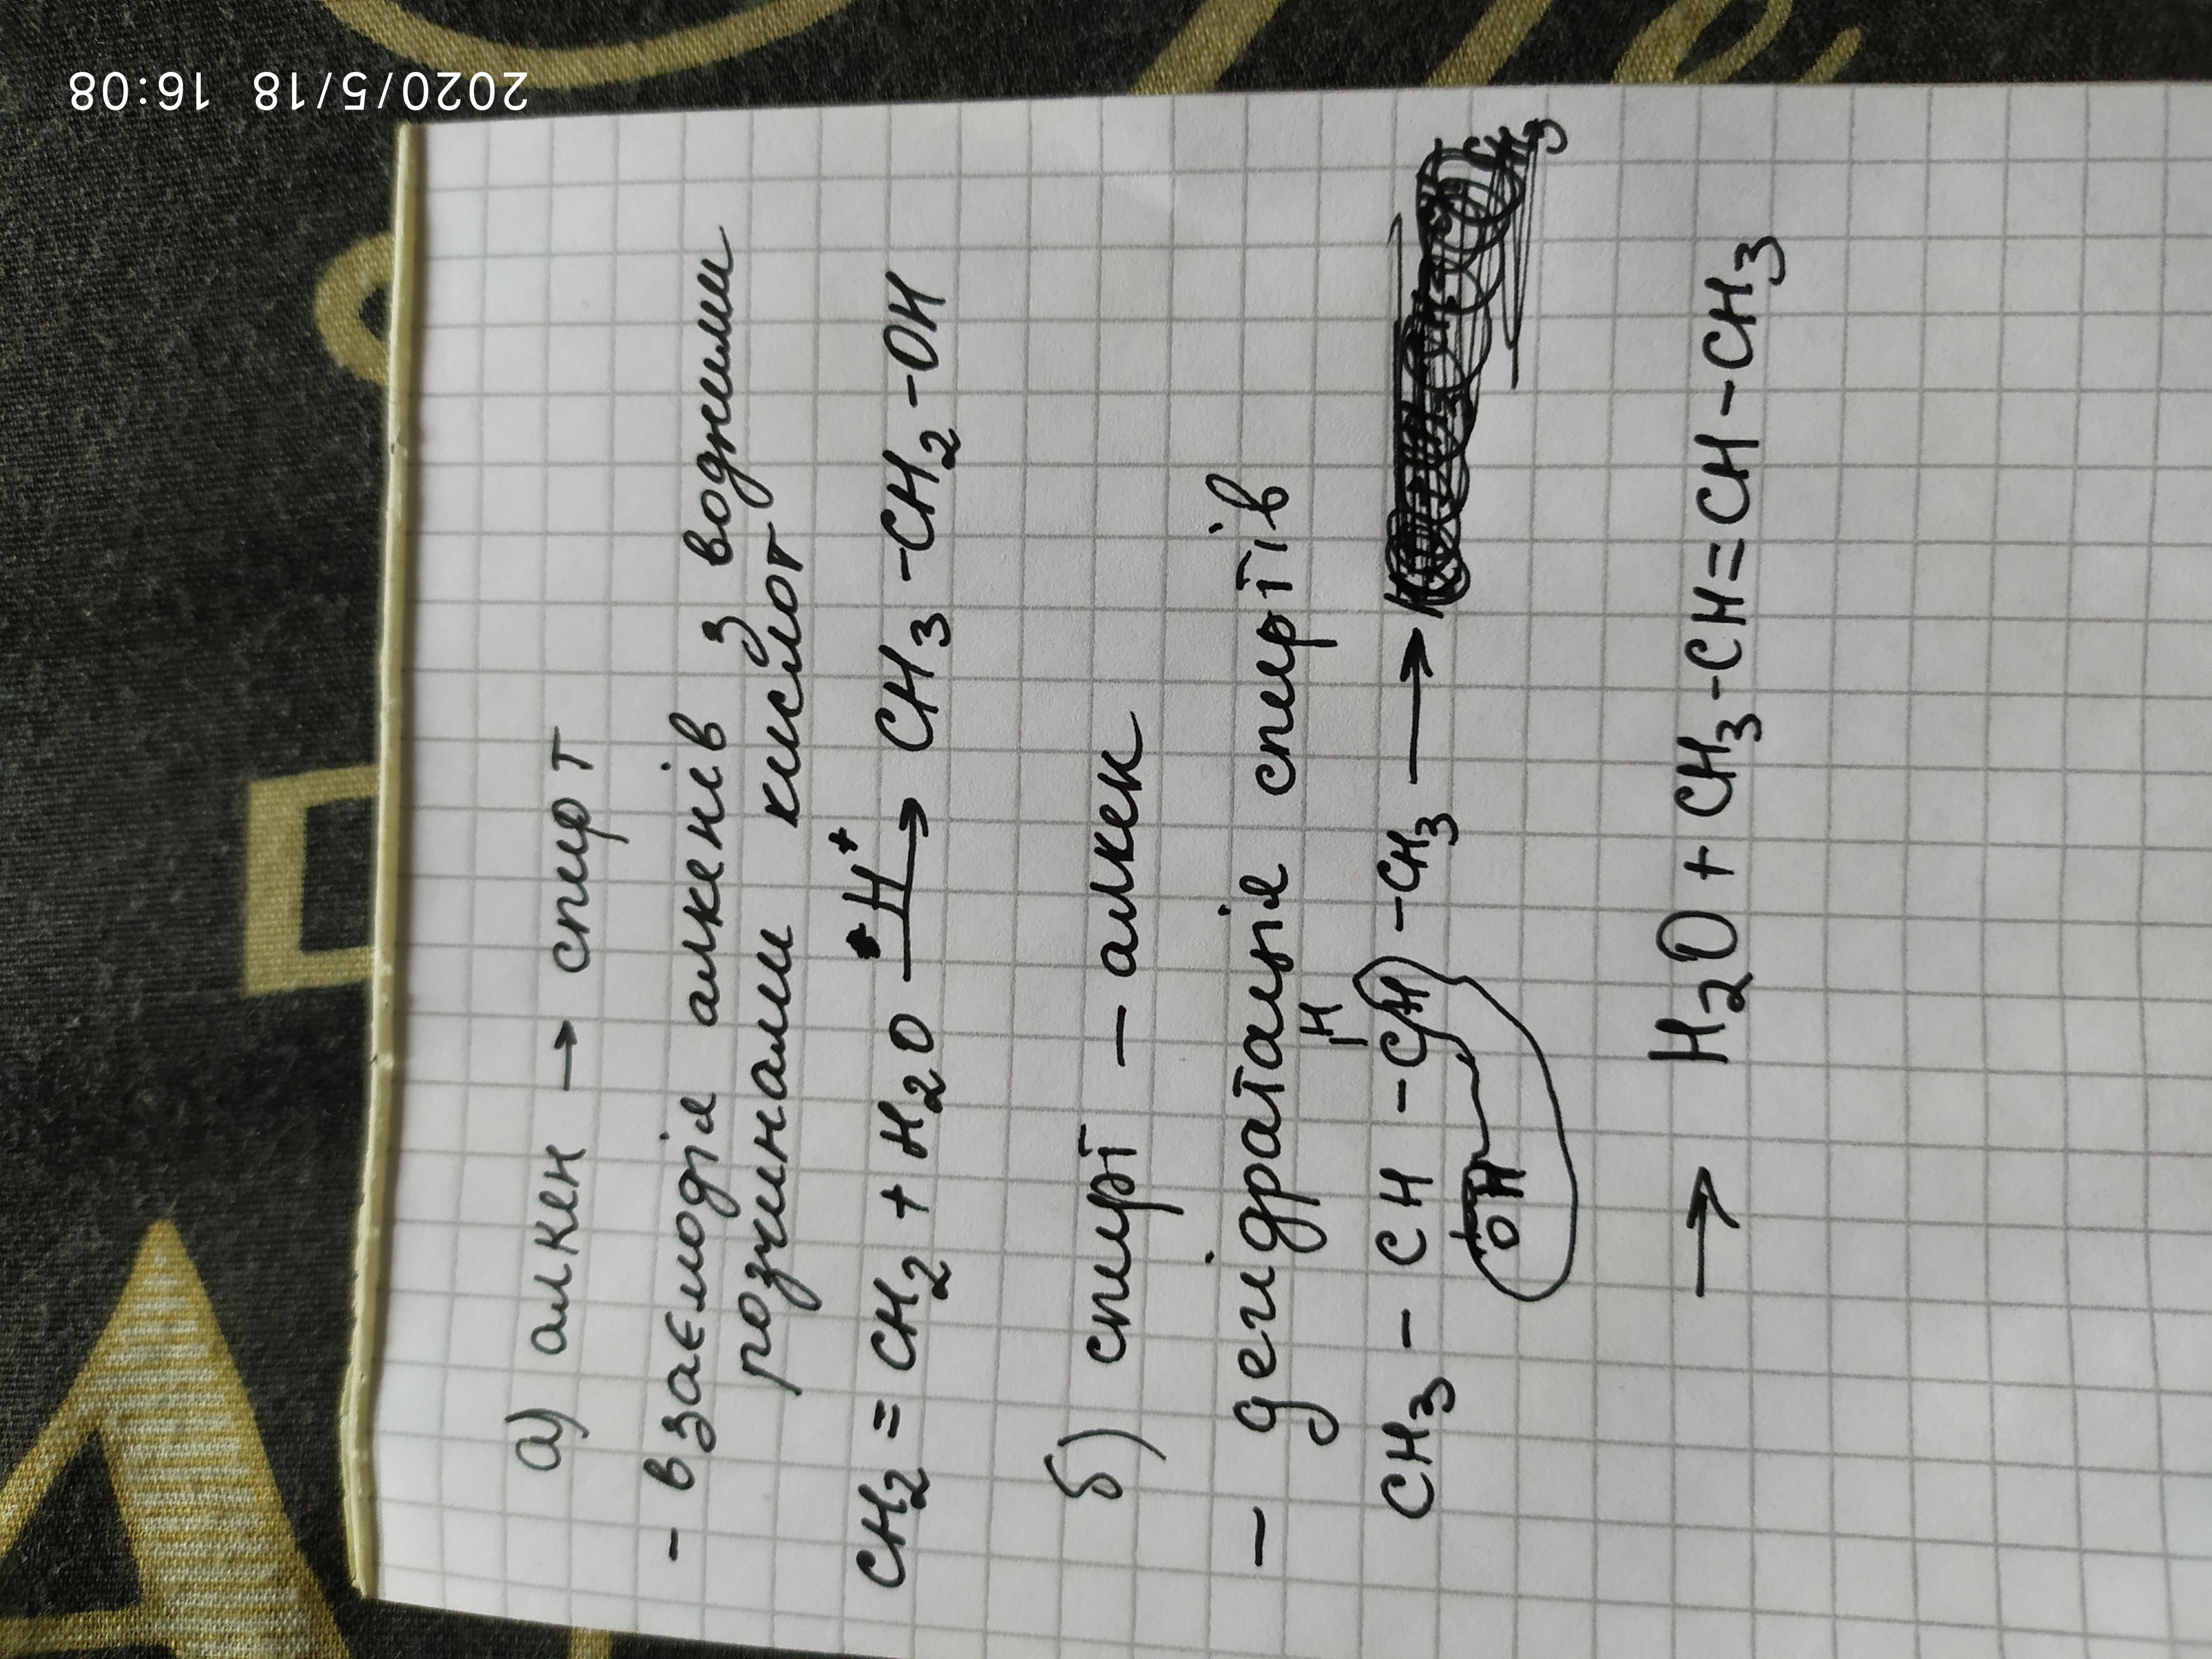 2020/5/18 16:08
а) алкен → спирт
- взаємодія алкенів з водними
розчинами кислот
CH₂ = CH₂ + H₂O —H⁺→ CH₃ - CH₂ - OH
б) спирт – алкен
– дегідратація спиртів
H
CH₃ – CH – CH – CH₃ →
OH
→ H₂O + CH₃-CH=CH-CH₃